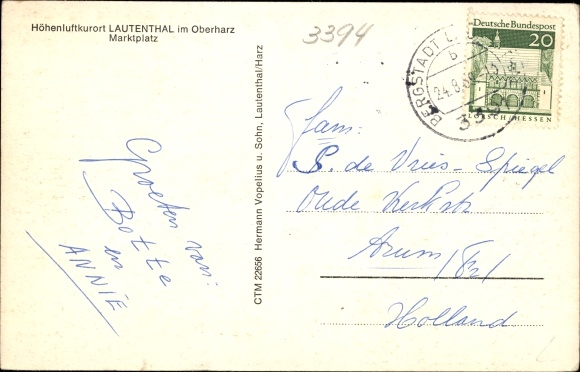 Höhenluftkurort LAUTENTHAL im Oberharz
Marktplatz
3394
Deutsche Bundespost
20
LORSCH/HESSEN
BERGSTADT
b
24.8.
33
Groeten van:
Botte
en
ANNIE
CTM 22656 Hermann Vopelius u. Sohn, Lautenthal/Harz
Fam:
P. de Vries-Spiegel
Oude Kerkstr
Arum/Frl
Holland